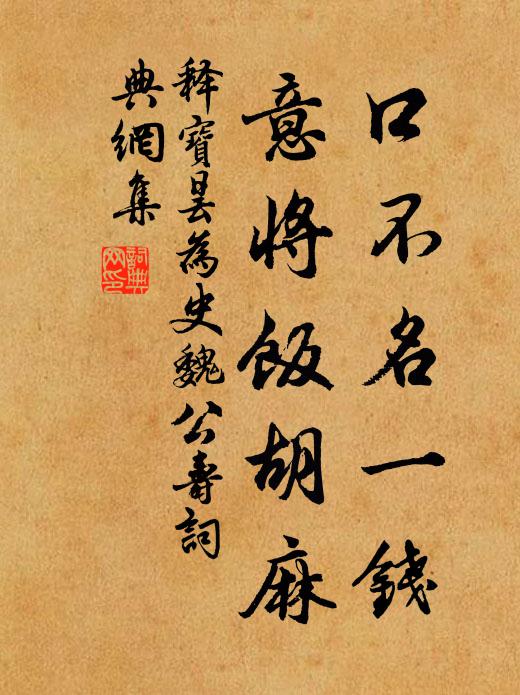 口不名一錢
意將飯胡麻
釋寶曇為史魏公壽詞
典網集
詞典網印